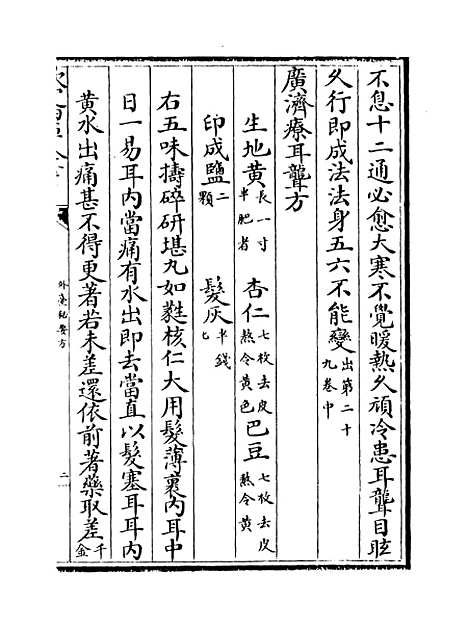 不息十二通必愈大寒不覺暖熱久頑冷患耳聾目眩
久行即成法法身五六不能變出第二十九卷中
廣濟療耳聾方
生地黃長一寸半肥者 杏仁七枚去皮熬令黃色 巴豆七枚去皮熬令黃
印成鹽二顆 髮灰半錢匕
右五味擣碎研堪丸如蕤核仁大用髮薄裹內耳中
日一易耳內當痛有水出即去當直以髮塞耳耳內
黃水出痛甚不得更著若未差還依前著藥取差千金
外臺秘要方
二